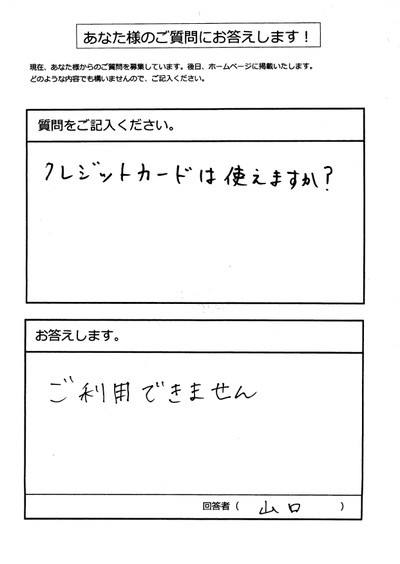 あなた様のご質問にお答えします！
現在、あなた様からのご質問を募集しています。後日、ホームページに掲載いたします。
どのような内容でも構いませんので、ご記入ください。
質問をご記入ください。
クレジットカードは使えますか？
お答えします。
ご利用できません
回答者（ 山口 ）